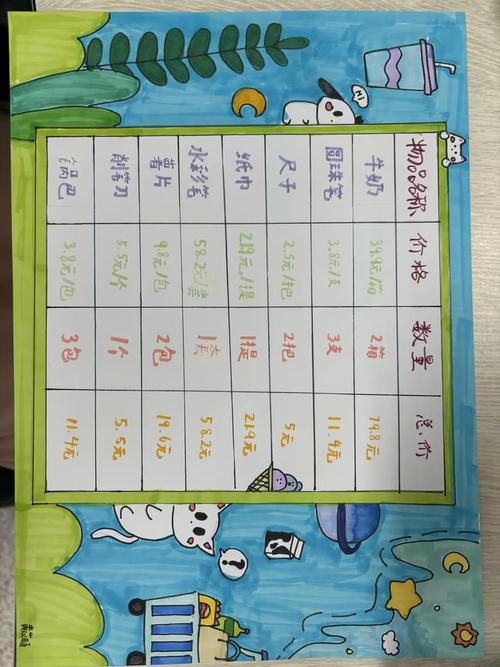 Hi
物品名称 价格 数量 总价
牛奶 39.9元/箱 2箱 79.8元
圆珠笔 3.8元/支 3支 11.4元
尺子 2.5元/把 2把 5元
纸巾 21.9元/提 1提 21.9元
水彩笔 58.2元/套 1套 58.2元
薯片 9.8元/包 2包 19.6元
削笔刀 5.5元/个 1个 5.5元
锅巴 3.8元/包 3包 11.4元